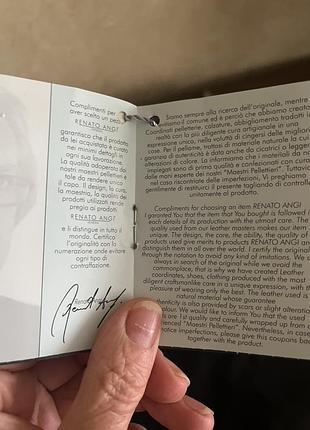 Complimenti per
aver scelto un pezzo
RENATO ANGI
garantisco che il prodotto
da lei acquistato è curato
nei minimi dettagli in
ogni sua lavorazione.
La qualità adoperata dai
nostri maestri rende unico
il capo. Il design, la cura,
la maestria, la qualità dei
prodotti utilizzati rende
pregio ai prodotti
RENATO ANGI
e li distingue in tutto il
mondo. Certifico
l'originalità con la
numerazione onde evitare
ogni tipo di
contraffazione.
Renato
Siamo sempre alla ricerca dell'originale, mentre
il comune ed è perciò che abbiamo creato
Coordinati pelletterie, calzature, abbigliamento tradotti in
realtà con la più diligente cura artigianale in una
espressione unica, nella più parte di
pregio. Il pellame adoperato, trattasi di materiale naturale la cui
garanzia di autenticità è dato da cicatrici o leggere
alterazioni di colore. Vi informiamo che i materiali da noi
impiegati sono di 1ª qualità e confezionati con cura
dai nostri esperti "Maestri Pellettieri". Tuttavia,
nel caso riscontriate delle imperfezioni, Vi preghiamo
di restituirci il presente tagliando di controllo
unitamente al prodotto.
Compliments for choosing an item RENATO ANGI
I garanted You that the item that You bought is followed in
each details of its production with the utmost care. The
quality used from our leather masters makes our item
unique. The design, the care, the ability, the quality of the
products used give merits to products RENATO ANGI and
distinguish them in all over the world. I certify the original
through the notation to avoid any kind of imitations. We are
always in search of the original while we avoid the
commonplace, that is why we have created Leather
coordinates, shoes, clothing produced with the most
diligent craftmanlike care in a unique expression, with the
pleasure of wearing only the best. The leather used is
natural material whose guarantee
authenticity is also provided by scars or slight alterations
colour. We would like to inform You that the used
are 1st quality and carefully wrapped up from our
experienced "Maestri Pellettieri". Nevertheless, in case
notice imperfections, please give this coupons back
together with the product.